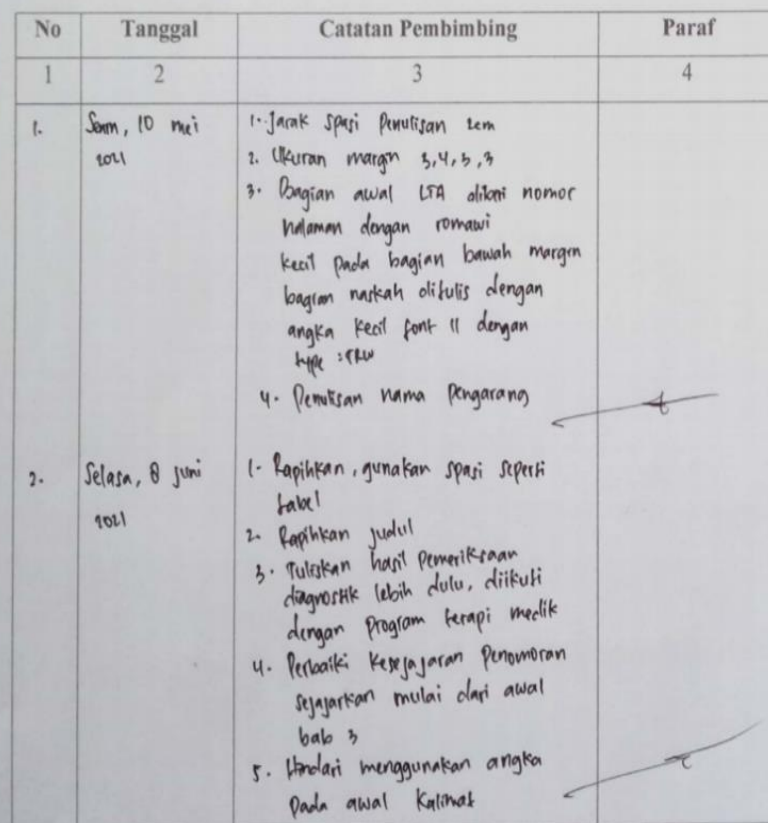 No Tanggal Catatan Pembimbing Paraf
1 2 3 4
1. Senin, 10 mei 1. Jarak spasi Penulisan 1cm
2021 2. Ukuran margin 3,4,3,3
3. Bagian awal LTA diberi nomor
halaman dengan romawi
kecil pada bagian bawah margin
bagian naskah ditulis dengan
angka kecil font 11 dengan
type :
4. Penulisan nama Pengarang
2. Selasa, 8 Juni 1. Rapihkan, gunakan spasi seperti
tabel
2021 2. Rapihkan judul
3. Tuliskan hasil Pemeriksaan
diagnostik lebih dulu, diikuti
dengan Program terapi medik
4. Perbaiki kesejajaran Penomoran
sejajarkan mulai dari awal
bab 3
5. Hindari menggunakan angka
Pada awal Kalimat